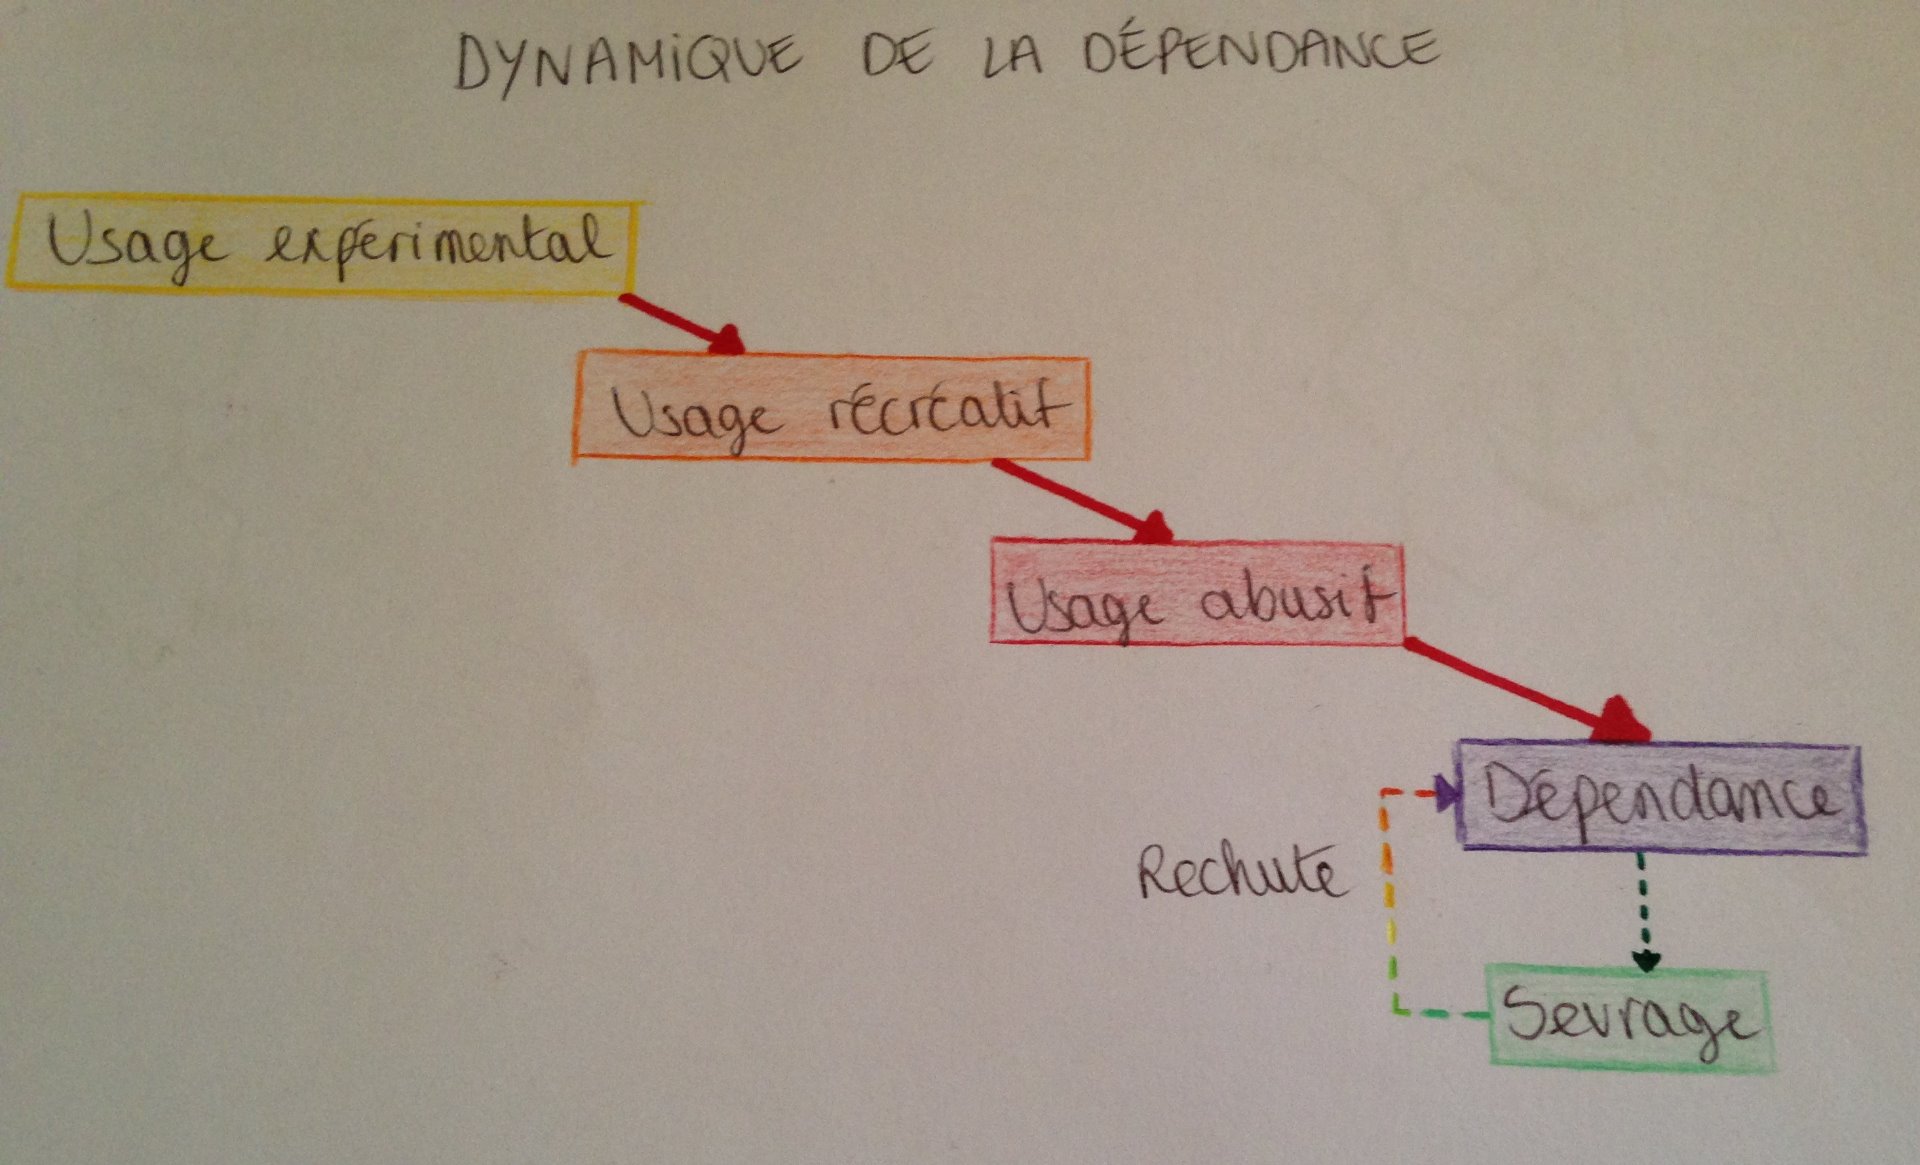 DYNAMIQUE DE LA DÉPENDANCE
Usage expérimental
Usage récréatif
Usage abusif
Dépendance
Rechute
Sevrage